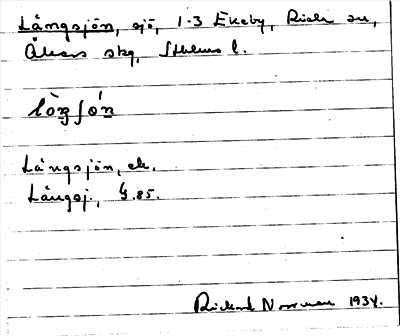 Långsjön, sjö, 1-3 Ekeby, Riala sn,
Åkers skg, Sthlms l.
lòŋʃǿn
Långsjön, ek.
Långsj., G. 85.
Rickard Norrman 1934.